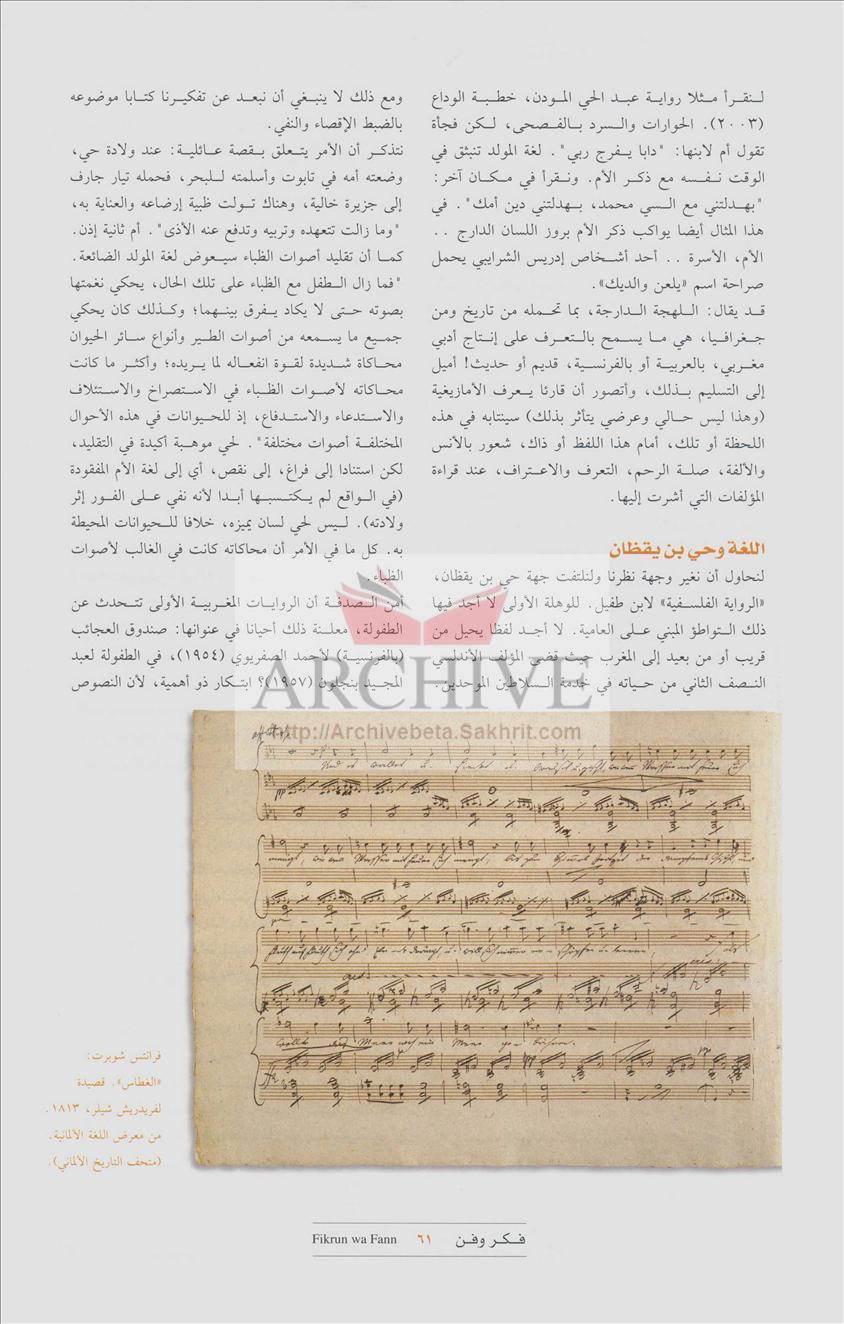 لـنقـرأ مـثلا روايـة عبـد الحي المـودن، خطـبة الوداع
(٢٠٠٣). الحوارات والـسرد بـالفـصحى، لـكن فجأة
تقول أم لابنها: "دابا يـفرج ربي". لغة المولد تنبثق في
الوقت نفـسه مع ذكـر الأم. ونـقرأ في مـكـان آخر:
"بهـدلتني مع الـسي محمد، بـهدلتني دين أمك". في
هذا المثال أيضا يواكب ذكر الأم بروز اللسان الدارج ..
الأم، الأسرة .. أحد أشـخاص إدريس الشرايبي يحمل
صراحة اسم «يلعن والديك».
قـد يقال: الـلهجة الـدارجة، بما تحـمله من تاريخ ومن
جـغرافـيا، هي مـا يـسمح بـالتـعرف على إنـتاج أدبي
مغـربي، بالعربيـة أو بالفرنسيـة، قديم أو حديث! أميل
إلى التسليم بـذلك، وأتصور أن قارئا يـعرف الأمازيغية
(وهذا ليس حـالي وعرضي يتأثر بذلك) سينتابه في هذه
اللحظة أو تلك، أمام هذا اللفظ أو ذاك، شعور بالأنس
والألفة، صلـة الرحم، التعرف والاعـتراف، عند قراءة
المؤلفات التي أشرت إليها.
اللغة وحي بن يقظان
لنحاول أن نغير وجهة نظرنا ولنلتفت جهة حي بن يقظان،
«الرواية الفلسـفية» لابن طفيل. للوهلة الأولى لا أجد فيها
ذلك الـتواطؤ المبني عـلى العامية. لا أجـد لفظا يحيل من
قريب أو من بعيد إلى المغرب حيث قضى المؤلف الأندلسي
النـصف الثاني من حيـاته في خدمة السلاطين الموحدين.
ومع ذلك لا ينبـغي أن نبعـد عن تفكيـرنا كتـابا موضوعه
بالضبط الإقصاء والنفي.
نتذكـر أن الأمر يتـعلق بـقصة عـائليـة: عند ولادة حي،
وضعته أمه في تابوت وأسلمته لـلبحر، فحمله تيار جارف
إلى جزيرة خالية، وهناك تـولت ظبية إرضاعه والعناية به،
"وما زالت تتعهده وتربيه وتدفع عنه الأذى". أم ثانية إذن.
كمـا أن تقليد أصوات الظباء سيـعوض لغة المولد الضائعة.
"فما زال الـطفل مع الظباء على تلك الحال، يحكي نغمتها
بصوته حتـى لا يكاد يـفرق بينـهما؛ وكـذلك كان يحكي
جمـيع ما يسـمعه من أصوات الطـير وأنواع سـائر الحيوان
محاكاة شـديدة لقـوة انفعـاله لما يـريده؛ وأكثـر ما كانت
محاكاته لأصـوات الظـباء في الاستـصراخ والاسـتئلاف
والاستـدعاء والاستـدفاع، إذ للحـيوانات في هذه الأحوال
المختلفـة أصوات مختلفة". لحي موهـبة أكيدة في التقليد،
لكن استنادا إلى فراغ، إلى نقص، أي إلى لغة الأم المفقودة
(في الـواقع لم يـكتـسبـها أبـدا لأنه نفي عـلى الفـور إثر
ولادته). لـيس لحي لسان يميزه، خلافا للـحيوانات المحيطة
به. كل ما في الأمر أن محاكاته كانت في الغالب لأصوات
الظباء.
أمن الـصدفـة أن الروايـات المغـربيـة الأولى تتحدث عن
الطفولة، معلـنة ذلك أحيانا في عنوانها: صندوق العجائب
(بالفرنسية) لأحمد الصفريوي (١٩٥٤)، في الطفولة لعبد
المجيد بنجلون (١٩٥٧)؟ ابتـكار ذو أهمية، لأن النصوص
ARCHIVE
http://Archivebeta.Sakhrit.com
فرانتس شوبرت:
«الغطاس». قصيدة
لفريدريش شيلر، ١٨١٣.
من معرض اللغة الألمانية.
(متحف التاريخ الألماني).
فـكـر وفـن ٦١ Fikrun wa Fann